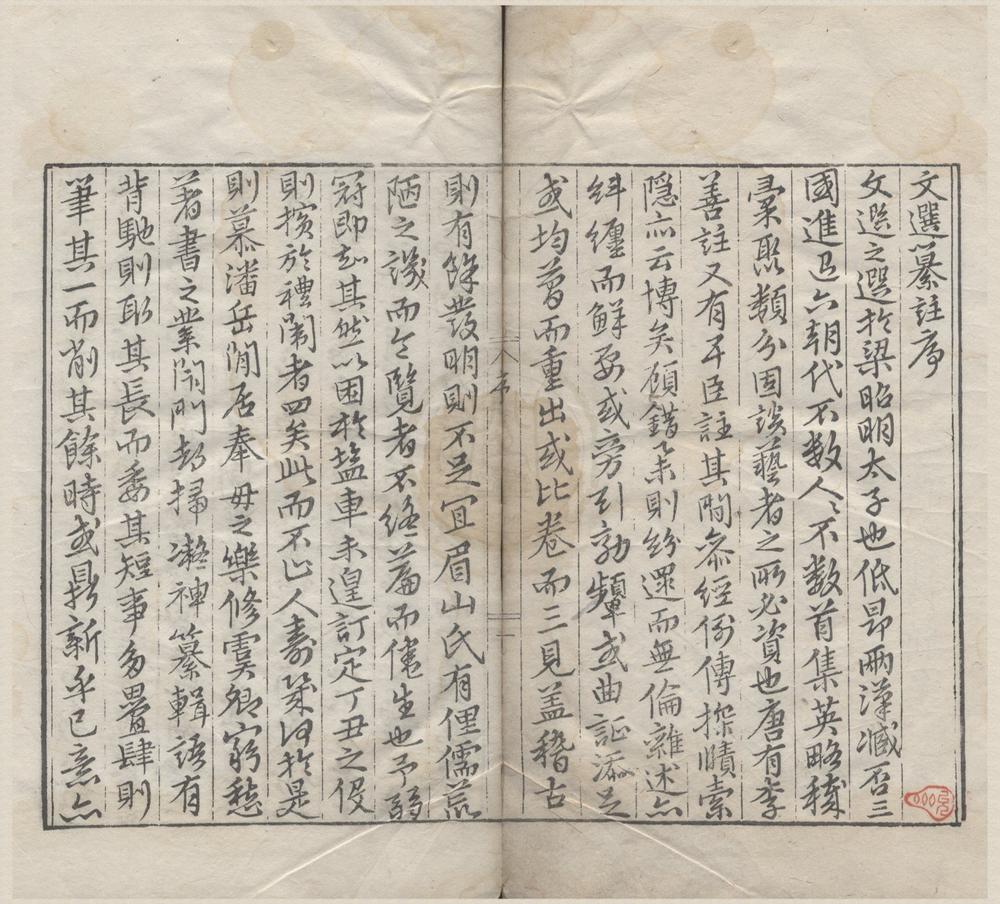 文選纂註序
文選之選於梁昭明太子也低昂兩漢臧否三
國進退六朝代不數人人不數首集英略穢
彚聚類分固談藝者之所必資也唐有李
善註又有五臣註其間泰經例傳探賾索
隱亦云博矣顧錯柔則紛還而無倫雜述亦
糾纏而鮮要或旁引効顰或曲証添足
或均簡而重出或比卷而三見盖稽古
八 序
一
則有餘發明則不足宜眉山氏有俚儒荒
陋之譏而令覽者不終篇而倦生也予弱
冠即知其然以困於塩車未遑訂定丁丑之役
則擯於禮闈者四矣此而不止人壽幾何於是
則慕潘岳閒居奉母之樂修虞卿窮愁
著書之業閉門却掃凝神纂輯語有
背馳則取其長而委其短事多疊肆則
筆其一而削其餘時或鼎新乎己意亦